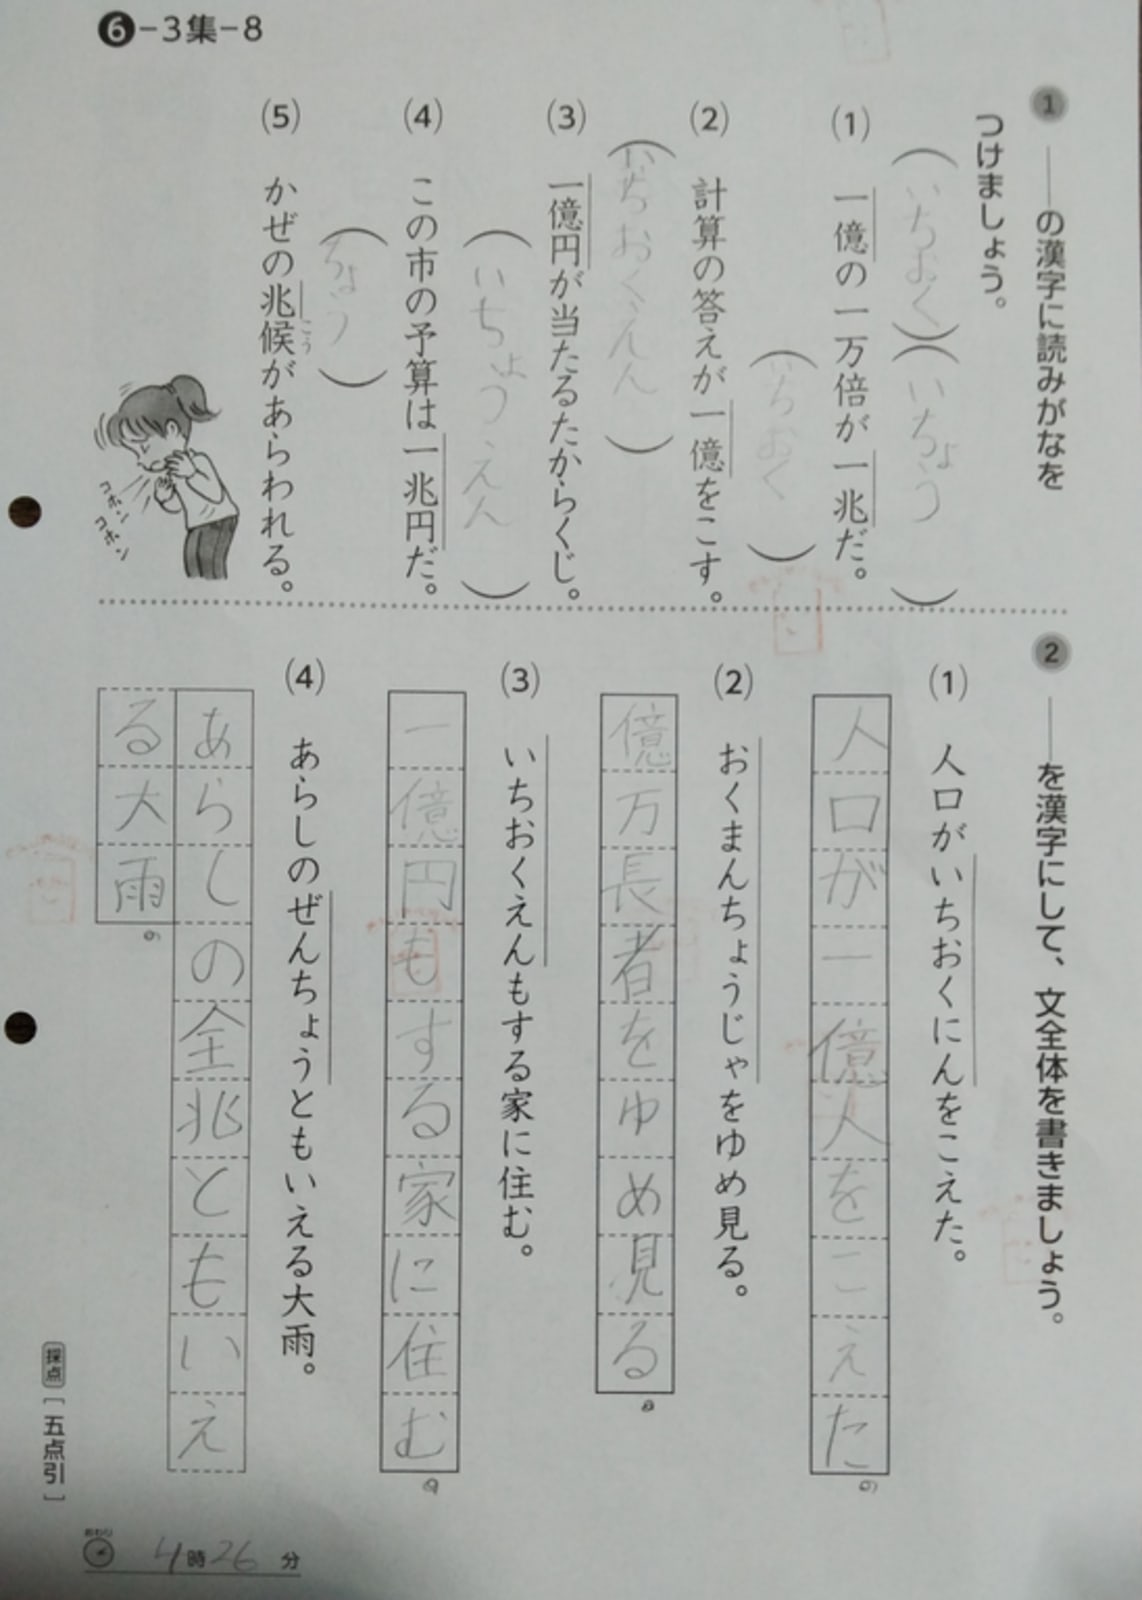 ❻-3集-8
1 ──の漢字に読みがなを
つけましょう。
(いちおく)(いちょう)
(1) 一億の一万倍が一兆だ。
(いちおく)
(2) 計算の答えが一億をこす。
(いちおくえん)
(3) 一億円が当たるたからくじ。
(いちょうえん)
(4) この市の予算は一兆円だ。
(ちょう)
(5) かぜの兆候があらわれる。
こう
コホン
コホン
2 ──を漢字にして、文全体を書きましょう。
(1) 人口がいちおくにんをこえた。
人口が一億人をこえた。
(2) おくまんちょうじゃをゆめ見る。
億万長者をゆめ見る。
(3) いちおくえんもする家に住む。
一億円もする家に住む。
(4) あらしのぜんちょうともいえる大雨。
あらしの全兆ともいえ
る大雨。
採点[五点引]
おわり
4時26分